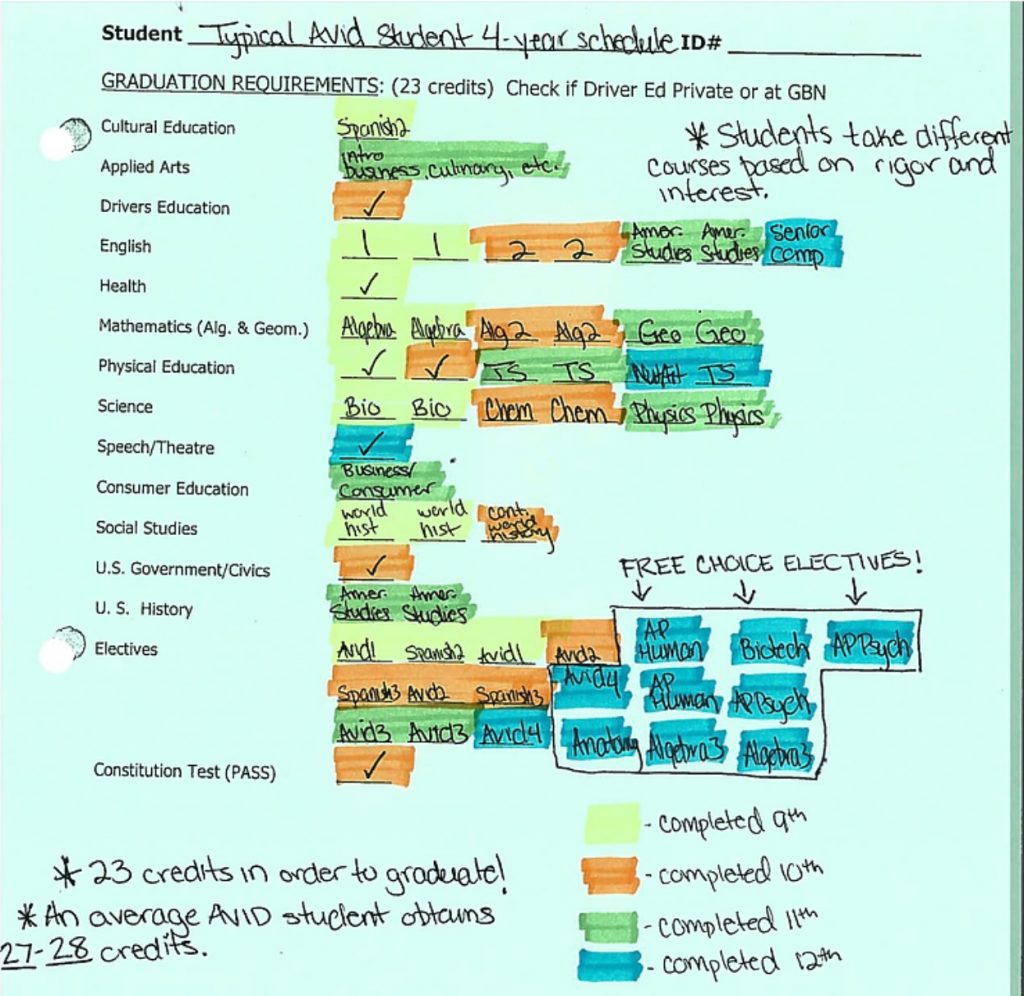 Student Typical Avid Student 4-year schedule ID#
GRADUATION REQUIREMENTS: (23 credits) Check if Driver Ed Private or at GBN
Cultural Education Spanish2
* Students take different
courses based on rigor and
interest.
Applied Arts Intro business, culinary, etc.
Drivers Education ✓
English 1 1 2 2 Amer. Studies Amer. Studies Senior Comp
Health ✓
Mathematics (Alg. & Geom.) Algebra Algebra Alg2 Alg2 Geo Geo
Physical Education ✓ ✓ TS TS TS
Science Bio Bio Chem Chem Physics Physics
Speech/Theatre ✓
Consumer Education Business/ Consumer
Social Studies world hist world hist cont. world history
U.S. Government/Civics ✓
FREE CHOICE ELECTIVES!
U. S. History Amer. Studies Amer. Studies
Electives Avid1 Spanish2 Avid1 Avid2 AP Human Biotech AP Psych
Spanish3 Avid2 Spanish3 Avid4 AP Human AP Psych
Avid3 Avid3 Avid4 Anatomy Algebra3 Algebra3
Constitution Test (PASS) ✓
- completed 9th
- completed 10th
- completed 11th
- completed 12th
* 23 credits in order to graduate!
* An average AVID student obtains
27-28 credits.